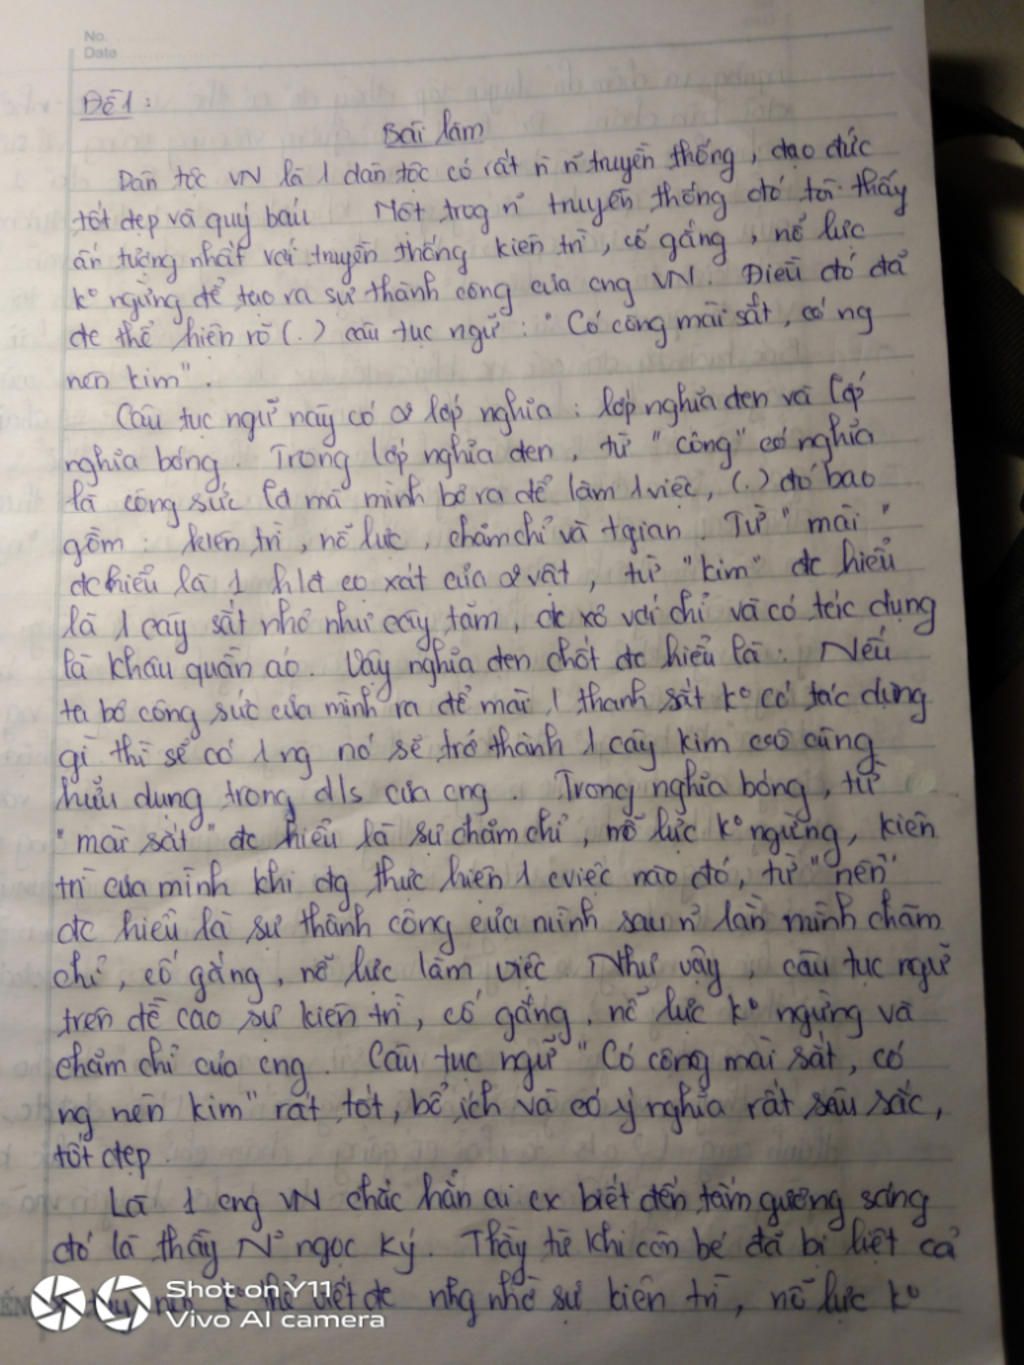 No.
Date
Đề 1:
Bài làm
Dân tộc VN là 1 dân tộc có rất n n~ truyền thống, đạo đức
tốt đẹp và quý báu Một trog n~ truyền thống đó tôi thấy
ấn tượng nhất với truyền thống kiên trì, cố gắng, nỗ lực
k° ngừng để tạo ra sự thành công của cng VN. Điều đó đã
đc thể hiện rõ (.) câu tục ngữ: "Có công mài sắt, có ng
nên kim".
Câu tục ngữ này có 2 lớp nghĩa: lớp nghĩa đen và lớp
nghĩa bóng. Trong lớp nghĩa đen, từ "công" có nghĩa
là công sức lđ mà mình bỏ ra để làm 1 việc, (.) đó bao
gồm: kiên trì, nỗ lực, chăm chỉ và tgian. Từ "mài"
đc hiểu là 1 hđ cọ xát của 2 vật, từ "kim" đc hiểu
là 1 cây sắt nhỏ như cây tăm, đc xỏ với chỉ và có tác dụng
là khâu quần áo. Vậy nghĩa đen chốt đc hiểu là: Nếu
ta bỏ công sức của mình ra để mài 1 thanh sắt k° có tác dụng
gì thì sẽ có 1 ng nó sẽ trở thành 1 cây kim vô cùng
hữu dụng trong đ/s của cng. Trong nghĩa bóng, từ
"mài sắt" đc hiểu là sự chăm chỉ, nỗ lực k° ngừng, kiên
trì của mình khi đg thực hiện 1 cviệc nào đó, từ "nên"
đc hiểu là sự thành công của mình sau n` lần mình chăm
chỉ, cố gắng, nỗ lực làm việc Như vậy, câu tục ngữ
trên đề cao sự kiên trì, cố gắng, nỗ lực k° ngừng và
chăm chỉ của cng. Câu tục ngữ "Có công mài sắt, có
ng nên kim" rất tốt, bổ ích và có ý nghĩa rất sâu sắc,
tốt đẹp.
Là 1 cng VN chắc hẳn ai cx biết đến tấm gương sáng
đó là thầy N~ ngọc Ký. Thầy từ khi còn bé đã bị liệt cả
tay nên k° thể viết đc nhg nhờ sự kiên trì, nỗ lực k°
Shot on Y11
Vivo AI camera